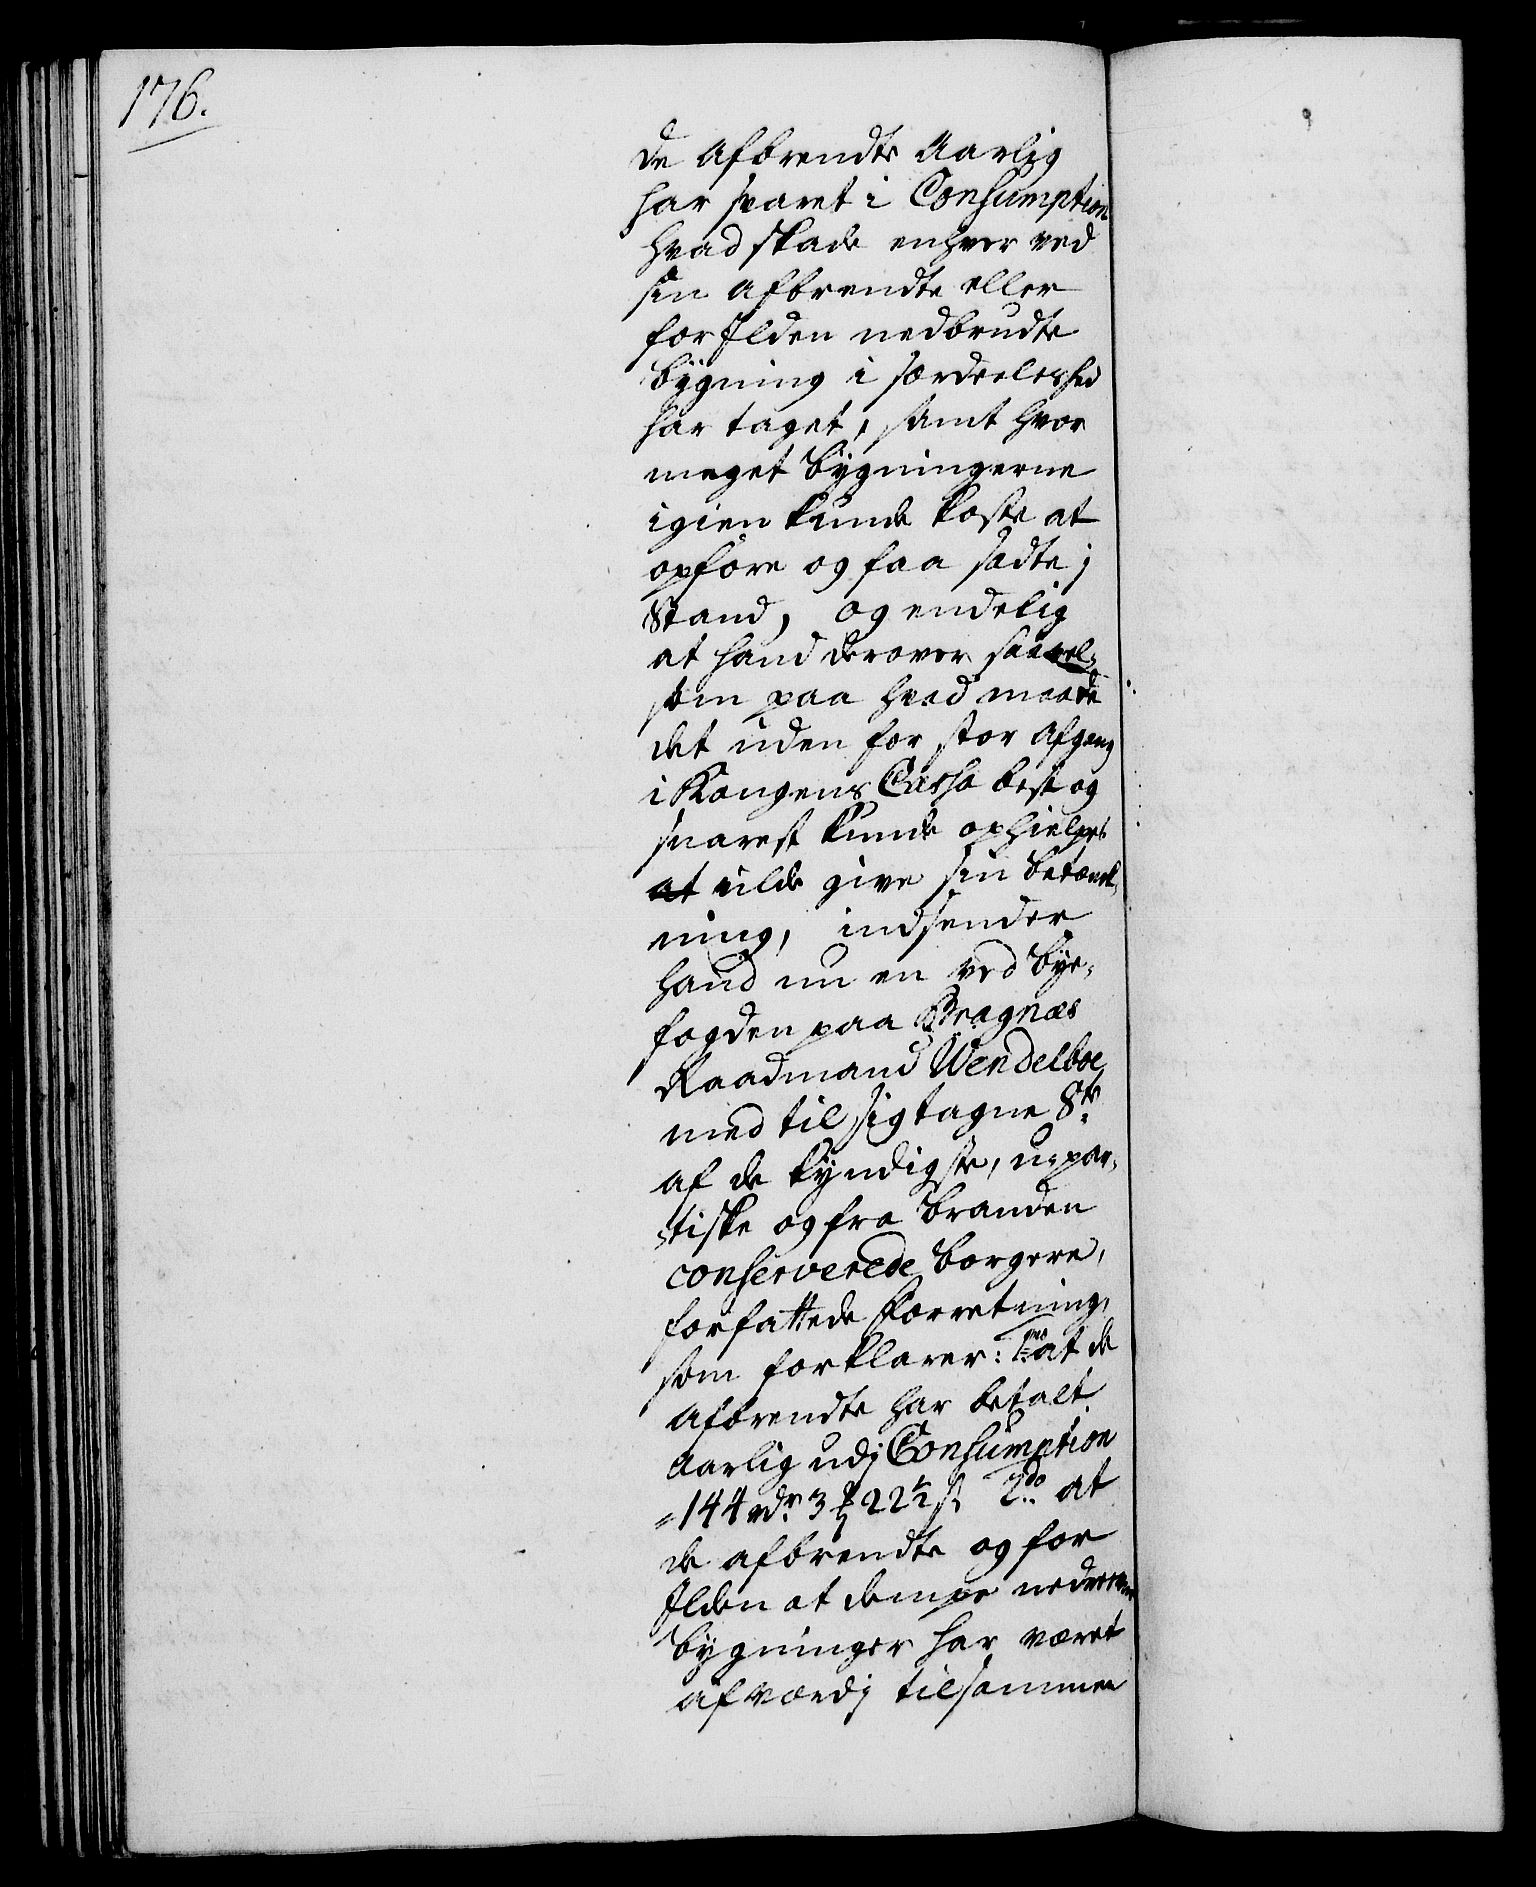 176.
de Afbrendte Aarlig
har svaret i Consumption
hvad skade enhver ved
sin Afbrendte eller
for Ilden nedbrudte
bÿgning i særdeleshed
har taget, samt hvor
meget bÿgningerne
igien kunde koste at
opføre og faa sadte j
Stand, og endelig
at hand derover saavel-
som paa hvad maade
det uden for stor Afgang
i Kongens Cassa best og
snarest kunde ophielpes
at vilde give sin betænk-
ning, indsender
hand nu en ved bÿe-
fogden paa Bragnæs
Raadmand Wendelboe
med til sig tagne 8te
af de kÿndigste, u-par-
tiske og fra branden
conserverede borgere,
forfattede Forretning,
som forklarer: 1mo at de
Afbrendte har betalt
Aarlig udj Consumption
144 rdr. 3 ℔ 22½ s. 2do at
de afbrendte og for
Ilden at dempe nedrevne
bÿgninger har været
af værdj tilsammen